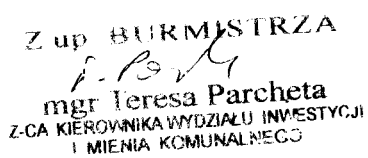 Z up BURMISTRZA
mgr Teresa Parcheta
Z-CA KIEROWNIKA WYDZIAŁU INWESTYCJI
I MIENIA KOMUNALNEGO